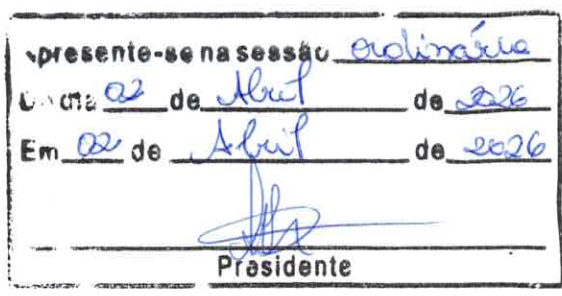 presente-se na sessão ordinária
dia 02 de Abril de 2026
Em 02 de Abril de 2026
Presidente